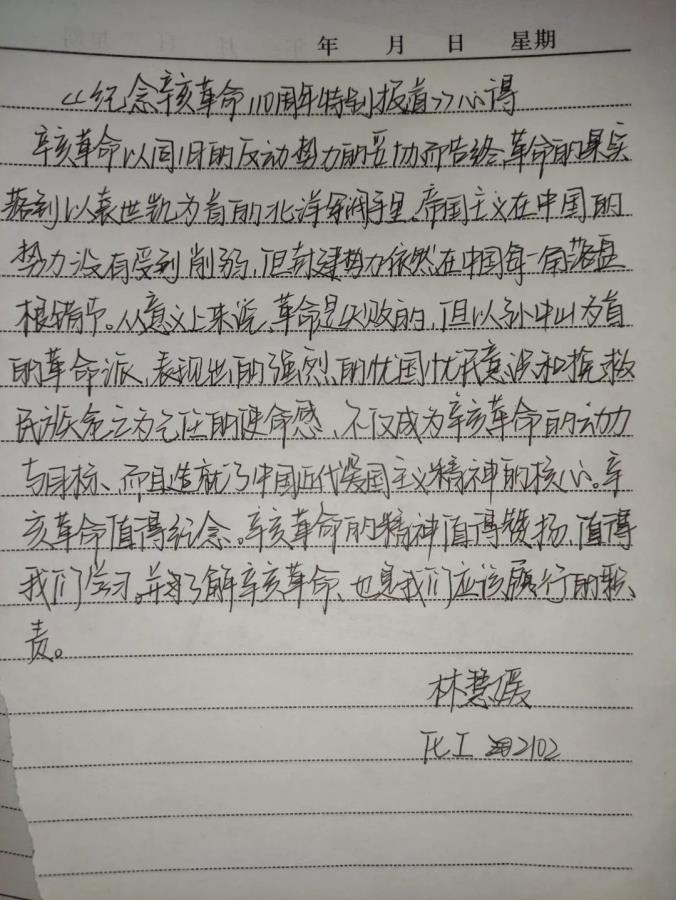 年 月 日 星期
《纪念辛亥革命110周年特别报道》心得
辛亥革命以同旧的反动势力的妥协而告终，革命的果实
落到以袁世凯为首的北洋军阀手里。帝国主义在中国的
势力没有受到削弱，但封建势力依然在中国每一角落盘
根错节。从意义上来说，革命是失败的，但以孙中山为首
的革命派、表现出的强烈的忧国忧民意识和挽救
民族危亡为己任的使命感、不仅成为辛亥革命的动力
与目标、而且造就了中国近代爱国主义精神的核心。辛
亥革命值得纪念。辛亥革命的精神值得赞扬，值得
我们学习。并了解辛亥革命、也是我们应该履行的职
责。
林慧媛
化工 2102